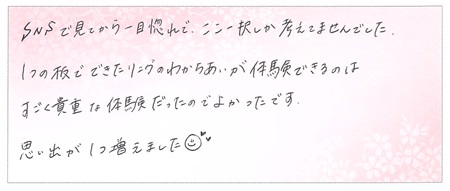 SNSで見てから一目惚れで、ここ一択しか考えてませんでした.
1つの板でできたリングのわからあいが体験できるのは
すごく貴重な体験だったのでよかったです.
思い出が1つ増えました☺♥♥